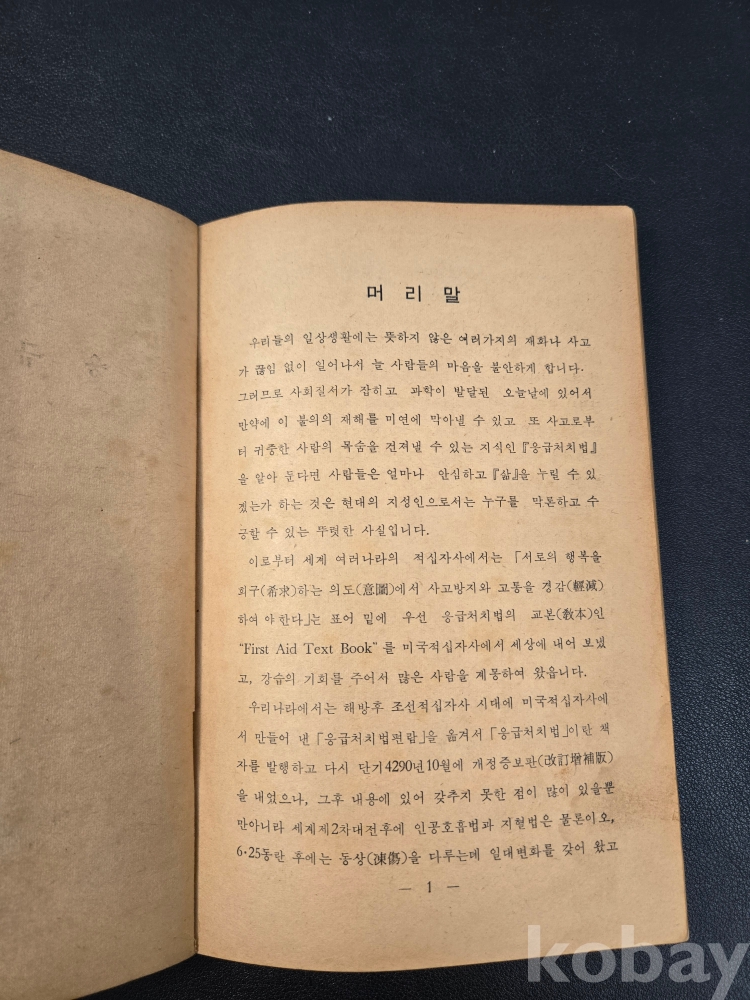 머 리 말
우리들의 일상생활에는 뜻하지 않은 여러가지의 재화나 사고
가 끊임 없이 일어나서 늘 사람들의 마음을 불안하게 합니다.
그러므로 사회질서가 잡히고 과학이 발달된 오늘날에 있어서
만약에 이 불의의 재해를 미연에 막아낼 수 있고 또 사고로부
터 귀중한 사람의 목숨을 건져낼 수 있는 지식인 『응급처치법』
을 알아 둔다면 사람들은 얼마나 안심하고 『삶』을 누릴 수 있
겠는가 하는 것은 현대의 지성인으로서는 누구를 막론하고 수
긍할 수 있는 뚜렷한 사실입니다.
이로부터 세계 여러나라의 적십자사에서는 「서로의 행복을
희구(希求)하는 의도(意圖)에서 사고방지와 고통을 경감(輕減)
하여야 한다」는 표어 밑에 우선 응급처치법의 교본(敎本)인
"First Aid Text Book"를 미국적십자사에서 세상에 내어 보냈
고, 강습의 기회를 주어서 많은 사람을 계몽하여 왔읍니다.
우리나라에서는 해방후 조선적십자사 시대에 미국적십자사에
서 만들어 낸 「응급처치법편람」을 옮겨서 「응급처치법」이란 책
자를 발행하고 다시 단기4290년10월에 개정증보판(改訂增補版)
을 내었으나, 그후 내용에 있어 갖추지 못한 점이 많이 있을뿐
만아니라 세계제2차대전후에 인공호흡법과 지혈법은 물론이오,
6·25동란 후에는 동상(凍傷)을 다루는데 일대변화를 갖어 왔고
— 1 —
kobay